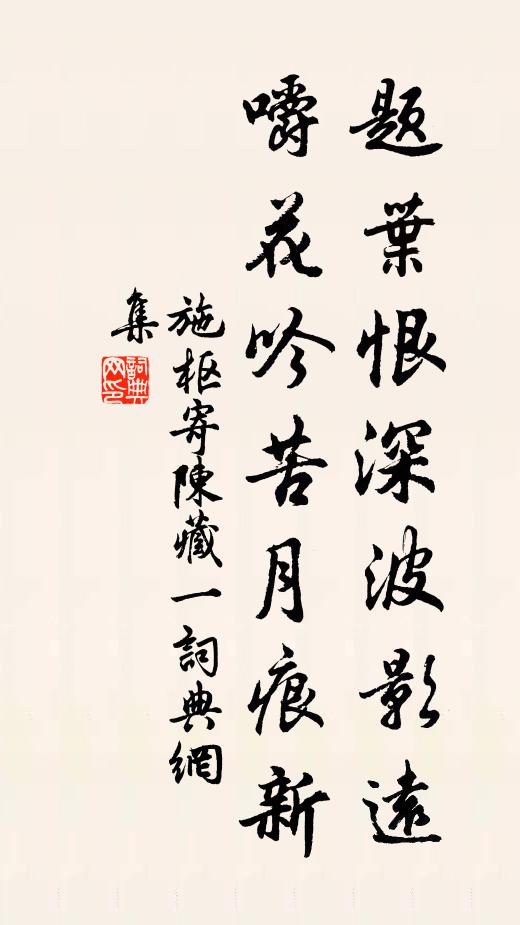 題葉恨深波影遠
嚼花吟苦月痕新
施枢寄陳藏一詞典網
集
詞典网印